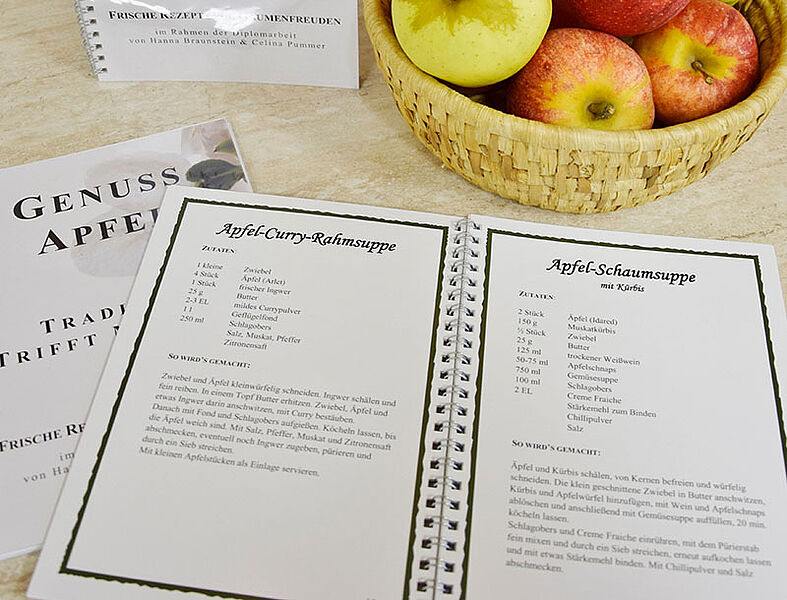 FRISCHE REZEPT
UMENFREUDEN
im Rahmen der Diplomarbeit
von Hanna Braunstein & Celina Pummer
GENUSS
APFEL
TRADI
TRIFFT
FRISCHE RE
im
von Ha
Apfel-Curry-Rahmsuppe
ZUTATEN:
1 kleine Zwiebel
4 Stück Äpfel (Arlet)
1 Stück frischer Ingwer
25 g Butter
2-3 EL mildes Currypulver
1 l Geflügelfond
250 ml Schlagobers
Salz, Muskat, Pfeffer
Zitronensaft
SO WIRD'S GEMACHT:
Zwiebel und Äpfel kleinwürfelig schneiden. Ingwer schälen und
fein reiben. In einem Topf Butter erhitzen. Zwiebel, Äpfel und
etwas Ingwer darin anschwitzen, mit Curry bestäuben.
Danach mit Fond und Schlagobers aufgießen. Köcheln lassen, bis
die Äpfel weich sind. Mit Salz, Pfeffer, Muskat und Zitronensaft
abschmecken, eventuell noch Ingwer zugeben, pürieren und
durch ein Sieb streichen.
Mit kleinen Apfelstücken als Einlage servieren.
Apfel-Schaumsuppe
mit Kürbis
ZUTATEN:
2 Stück Äpfel (Idared)
150 g Muskatkürbis
½ Stück Zwiebel
25 g Butter
125 ml trockener Weißwein
50-75 ml Apfelschnaps
750 ml Gemüsesuppe
100 ml Schlagobers
2 EL Creme Fraiche
Stärkemehl zum Binden
Chillipulver
Salz
SO WIRD'S GEMACHT:
Äpfel und Kürbis schälen, von Kernen befreien und würfelig
schneiden. Die klein geschnittene Zwiebel in Butter anschwitzen,
Kürbis und Apfelwürfel hinzufügen, mit Wein und Apfelschnaps
ablöschen und anschließend mit Gemüsesuppe auffüllen, 20 min.
köcheln lassen.
Schlagobers und Creme Fraiche einrühren, mit dem Pürierstab
fein mixen und durch ein Sieb streichen, erneut aufkochen lassen
und mit etwas Stärkemehl binden. Mit Chillipulver und Salz
abschmecken.